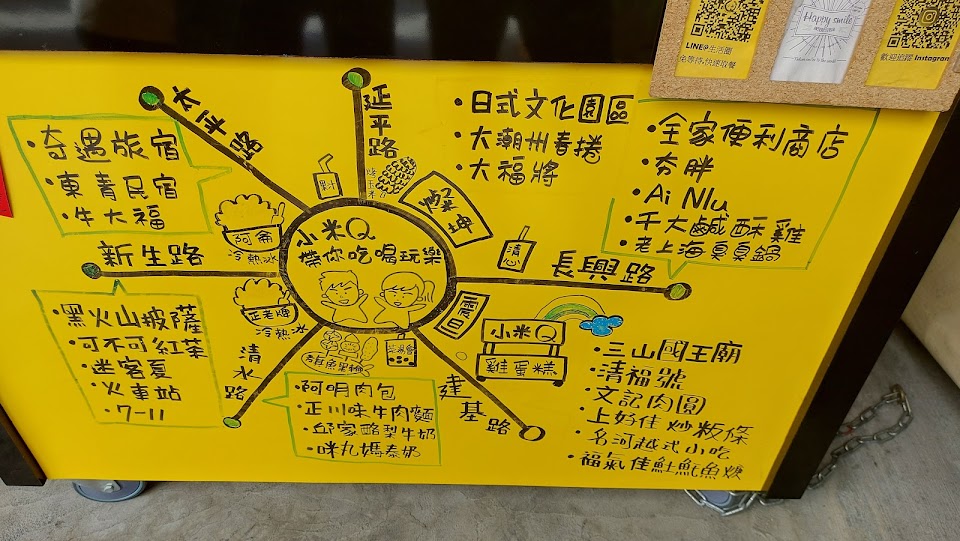 LINE@生活圈
免等待・快速取餐
Happy smile
歡迎追蹤 Instagram
太平路
延平路
・日式文化園區
・大潮州春捲
・大福將
・全家便利商店
・夯胖
・Ai NIu
・千大鹹酥雞
・老上海臭臭鍋
・奇遇旅宿
・東青民宿
・牛大福
果汁
燒玉米
燦坤
阿倫
冷熱冰
小米Q
帶你吃喝玩樂
清心
新生路
長興路
正老牌
冷熱冰
震旦
小米Q
雞蛋糕
・黑火山披薩
・可不可紅茶
・迷客夏
・火車站
・7-11
清水路
建基路
・阿明肉包
・正川味牛肉麵
・邱家酪梨牛奶
・咪丸媽泰奶
・三山國王廟
・清福號
・文記肉圓
・上好佳炒粄條
・名河越式小吃
・福氣佳魠魠魚焿